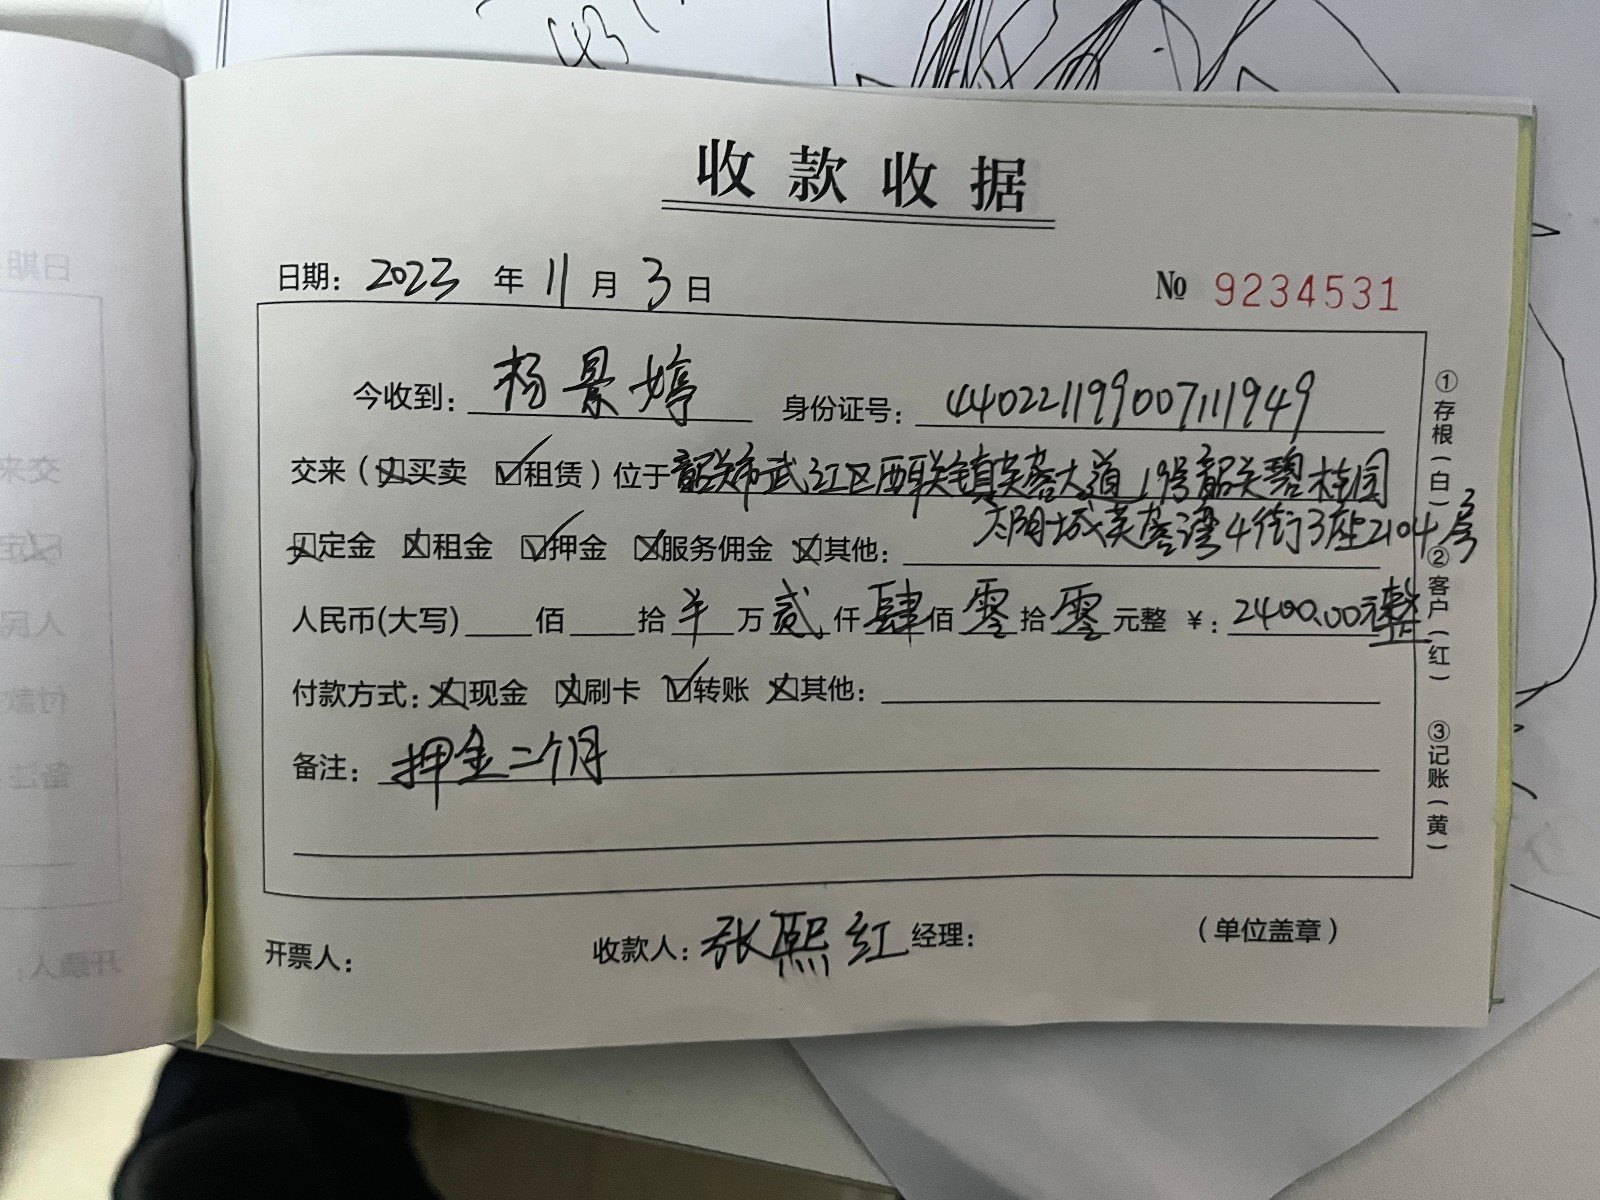 收款收据
日期: 2023 年 11 月 3 日 № 9234531
今收到: 杨景婷 身份证号: 440221199007111949
交来（☒买卖 ☑租赁）位于韶关市武江区西联镇芙蓉大道19号韶关碧桂园
太阳城芙蓉湾4街3座2104号
☒定金 ☒租金 ☑押金 ☒服务佣金 ☒其他:
人民币(大写) 佰 拾 万 贰 仟 肆 佰 零 拾 零 元整 ¥: 2400.00元整
付款方式: ☒现金 ☒刷卡 ☑转账 ☒其他:
备注: 押金二个月
开票人: 收款人: 张熙红 经理: （单位盖章）
①存根(白)
②客户(红)
③记账(黄)